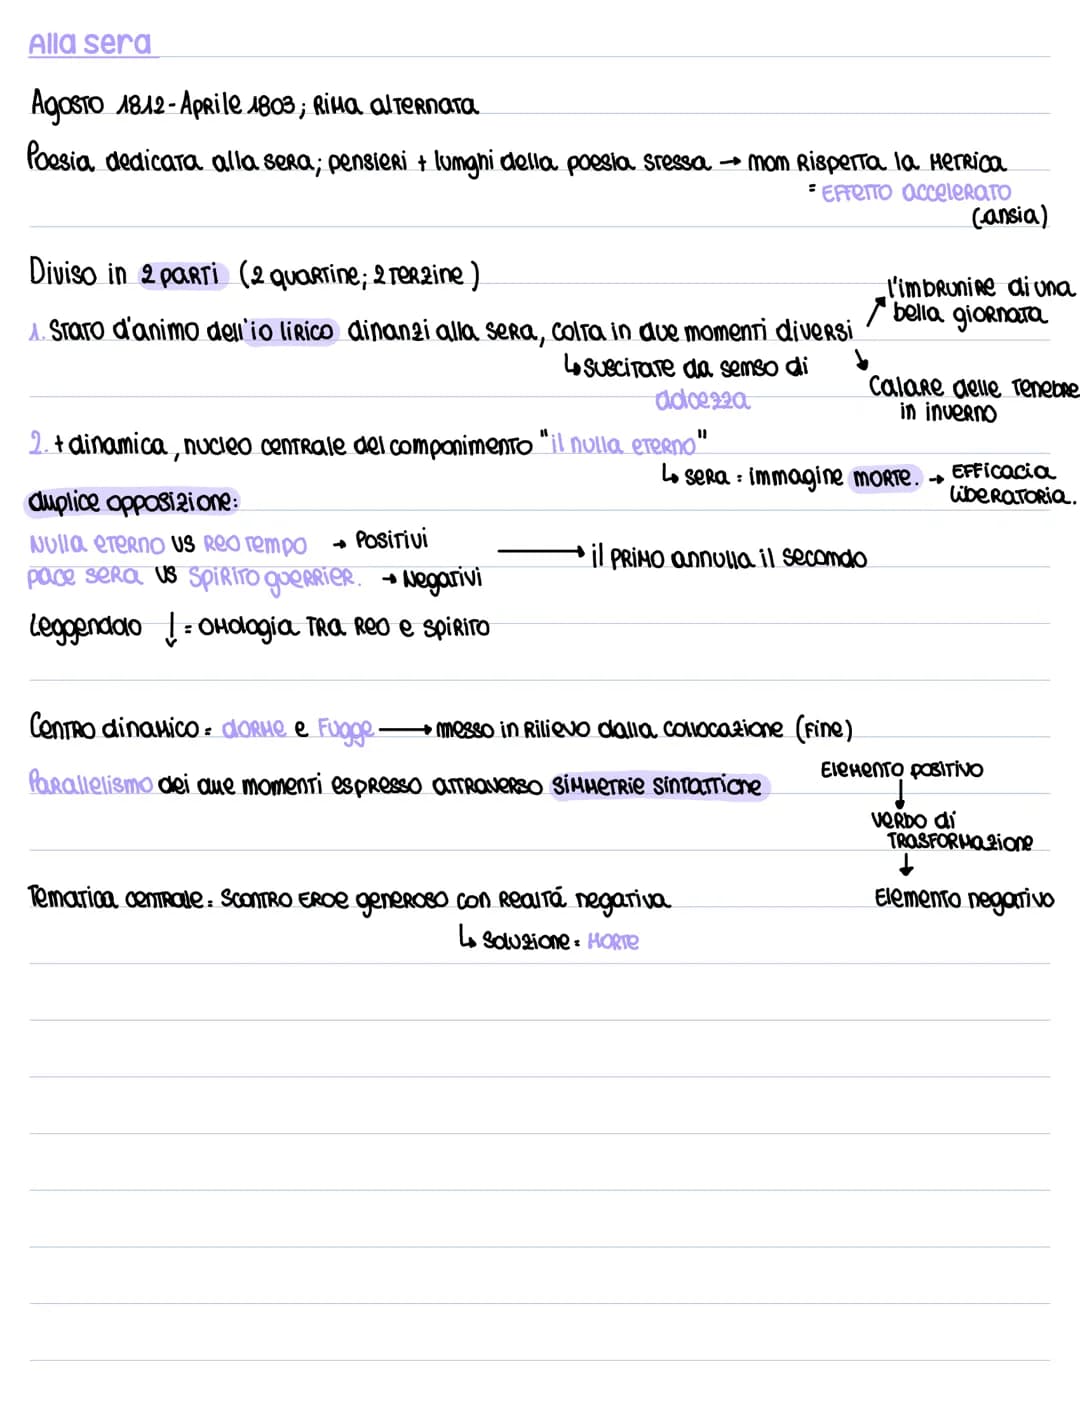 Alla sera
Agosto 1812-Aprile 1803; Rima alternata
Poesia dedicata alla sera; pensieri + lunghi della poesia stessa → non Rispetta la metrica
= Effetto accelerato
(ansia)
Diviso in 2 parti (2 quartine; 2 terzine)
1. Stato d'animo dell'io lirico dinanzi alla sera, colta in due momenti diversi
l'imbrunire di una
bella giornata
↳ suscitate da senso di
dolcezza
Calare delle tenebre
in inverno
2. + dinamica, nucleo centrale del componimento "il nulla eterno"
↳ sera = immagine morte. → Efficacia
liberatoria.
duplice opposizione:
Nulla eterno vs Reo tempo → Positivi
pace sera vs Spirito guerrier. → Negativi
→ il primo annulla il secondo
Leggendolo ↓ = omologia tra Reo e spirito
Centro dinamico = dorme e Fugge → messo in Rilievo dalla collocazione (fine)
Parallelismo dei due momenti espresso attraverso simmetrie sintattiche
Elemento positivo
↓
verbo di
trasformazione
↓
Elemento negativo
Tematica centrale = Scontro Eroe generoso con Realtá negativa
↳ Soluzione = Morte